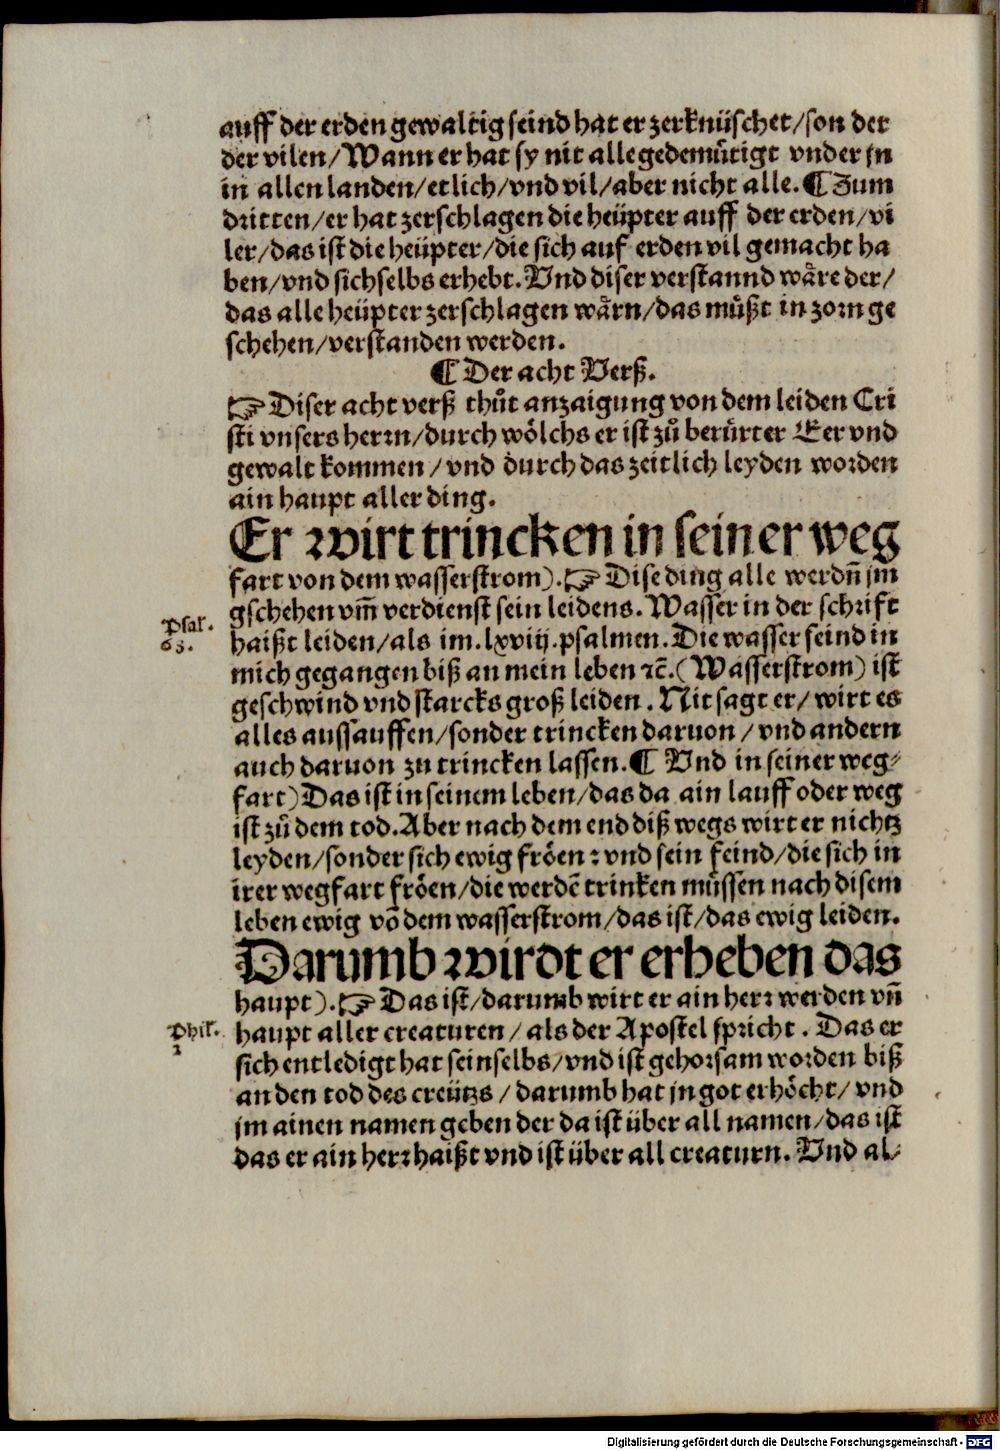 auff der erden gewaltig seind hat er zerknüschet/son der
der vilen/Wann er hat sy nit alle gedemůtigt vnder jn
in allen landen/etlich/vnd vil/aber nicht alle.¶Zum
dritten/er hat zerschlagen die heüpter auff der erden/vi
ler/das ist die heüpter/die sich auf erden vil gemacht ha
ben/vnd sichselbs erhebt.Vnd diser verstannd wåre der/
das alle heüpter zerschlagen wårn/das můßt in zorn ge
schehen/verstanden werden.
¶Der acht Verß.
☞Diser acht verß thůt anzaigung von dem leiden Cri
sti vnsers herrn/durch wölchs er ist zů berůrter Eer vnd
gewalt kommen/vnd durch das zeitlich leyden worden
ain haupt aller ding.
Er wirt trincken in seiner weg
fart von dem wasserstrom).☞Dise ding alle werdñ jm
gschehen vm̃ verdienst sein leidens.Wasser in der schrift
Psal.
68.
haißt leiden/als im.lxviij.psalmen.Die wasser seind in
mich gegangen biß an mein leben ꝛc̃.(Wasserstrom) ist
geschwind vnd starcks groß leiden.Nit sagt er/wirt es
alles aussauffen/sonder trincken daruon/vnd andern
auch daruon zu trincken lassen.¶ Vnd in seiner weg⸗
fart)Das ist in seinem leben/das da ain lauff oder weg
ist zů dem tod.Aber nach dem end diß wegs wirt er nichtz
leyden/sonder sich ewig fröen:vnd sein feind/die sich in
irer wegfart fröen/die werdẽ trinken müssen nach disem
leben ewig võ dem wasserstrom/das ist/das ewig leiden.
Darumb wirdt er erheben das
haupt).☞Das ist/darumb wirt er ain herꝛ werden vñ
Phil.
2
haupt aller creaturen/als der Apostel spricht.Das er
sich entledigt hat seinselbs/vnd ist gehorsam worden biß
an den tod des creützs/darumb hat jn got erhöcht/vnd
jm ainen namen geben der da ist über all namen/das ist
das er ain herꝛ haißt vnd ist über all creaturn.Vnd al⸗
Digitalisierung gefördert durch die Deutsche Forschungsgemeinschaft - DFG